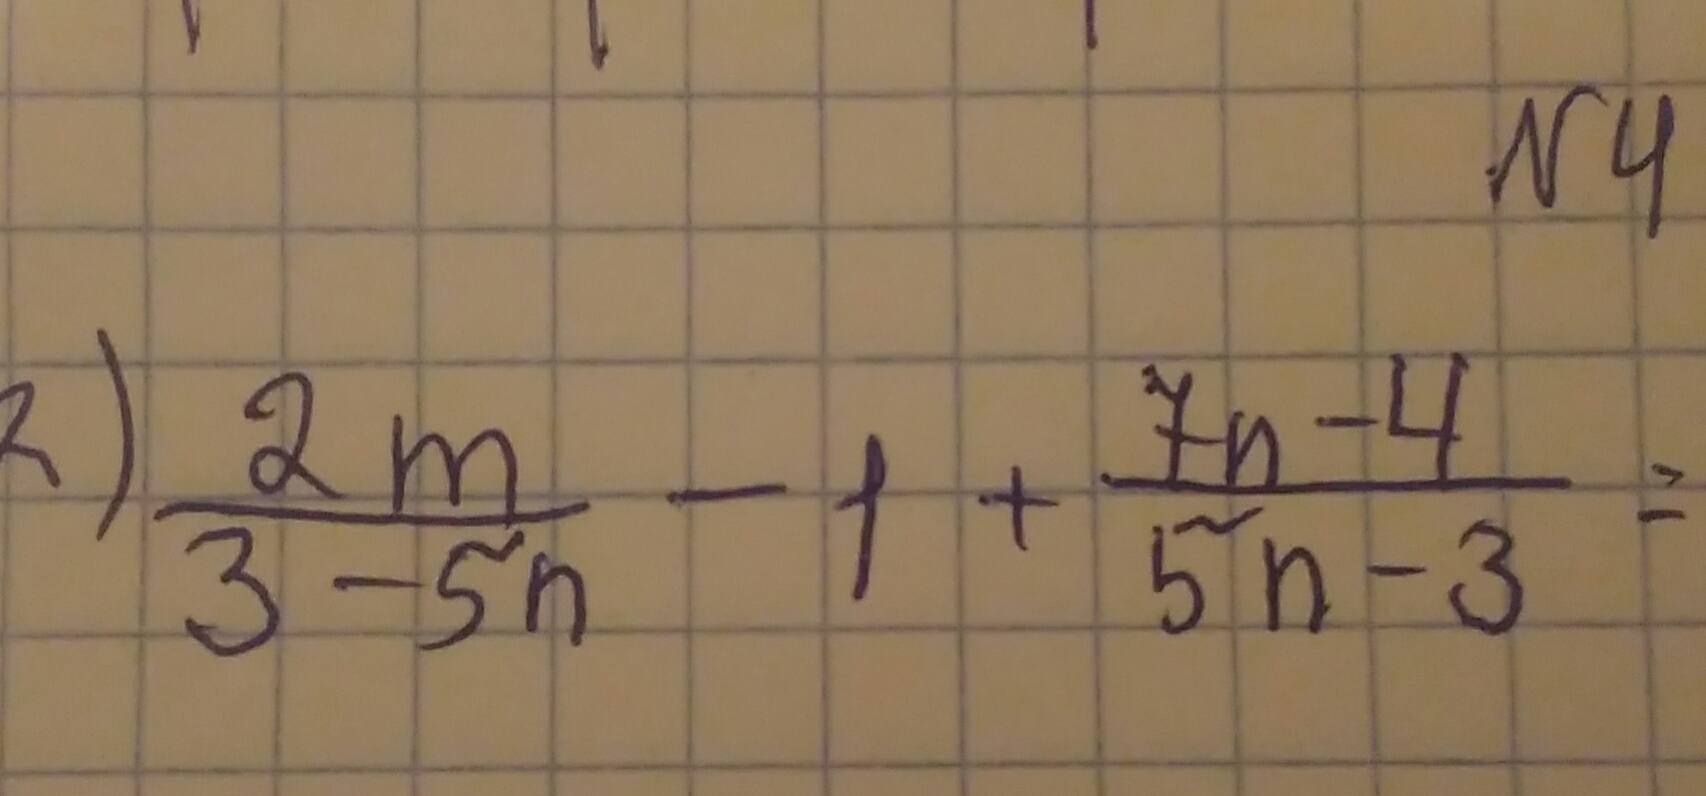 N4
2) 2m/(3-5n) - 1 + (7n-4)/(5n-3) =